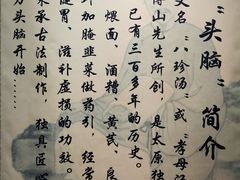 "头脑"简介
又名"八珍汤"或"孝母汤
傅山先生所创，是太原独
已有三百多年的历史。
煨面、酒糟、黄芪、良
外加腌韭菜做药引，经常
健胃、滋补虚损的功效。
来承古法制作，独具匠心
为头脑开始……